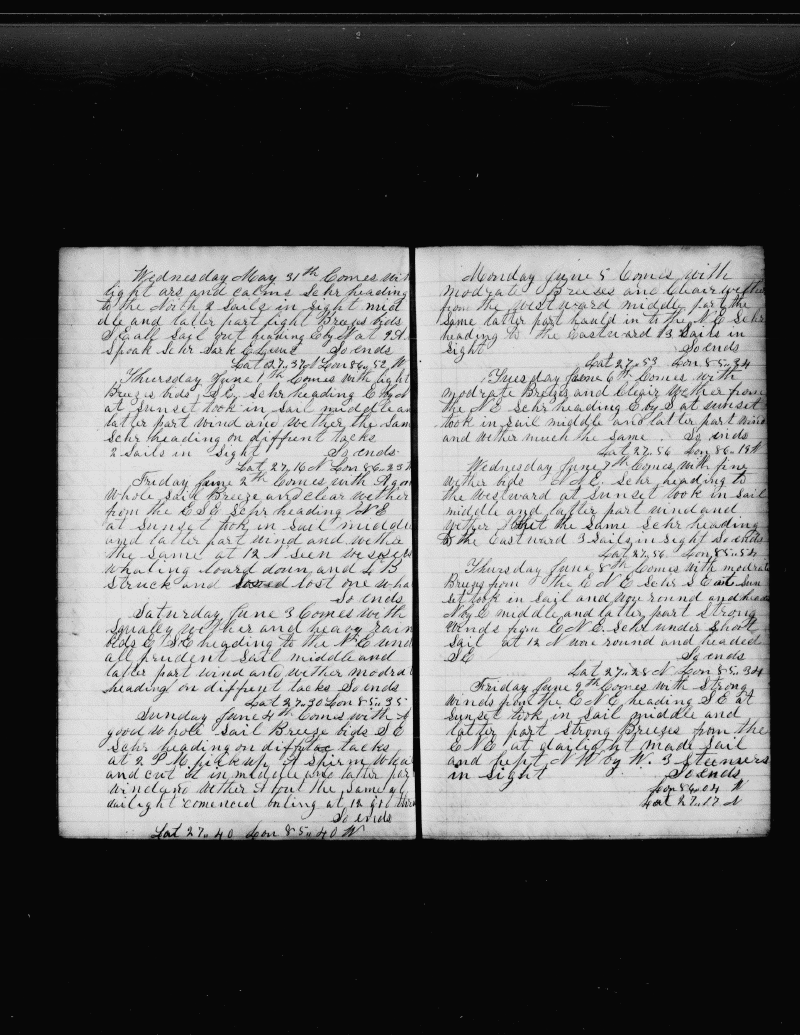 Wednesday May 31th Comes
light ars and calms Schr heading
to the North 2 Sails in Sight mid
dle and latter part light Breezs bids
S E all sail out heading E by N at 9 A
Spoak Schr So ends
Lat 27.37 N Lon 86.52 W
Thursday June 1th Comes with light
Brezis bids S E, Schr heading E by N
at sunset took in Sail middle an
latter part wind and wether the sam
Schr heading on diffrent tacks
2 Sails in Sight So ends
Lat 27.16 N Lon 86.23 W
Friday June 2th Comes with A gon
whole Sail Breeze and clear wether
from the E S E Schr heading N E
at sunset took in sail middle
and latter part wind and wethe
the same at 12 N seen
whaling loard down and L B
Struck and lost one wha
So ends
Saturday June 3 Comes with
Squally wether and heavy rain
bids E S E heading to the N E und
all prudent Sail middle and
latter part wind and wether modrat
heading on diffrent tacks So ends
Lat 27.30 Lon 85.35
Sunday June 4th Comes with A
good whole Sail Breeze bids S E
Schr heading on tacks
at 2 P M pick up A Spirm Wha
and cut it in middle and latter par
wind and wether A bout the same at
dailight comenced boling at 12
So ends
Lat 27.40 Lon 85.40 W
Monday June 5 Comes with
modrate Breezes and Clear wether
from the Westward middle part the
Same latter part hauld in to the N E Schr
heading to the Eastward 13 Sails in
Sight So ends
Lat 27.53 Lon 85.24
Tuesday June 6th Comes with
modrate Brezes and Clair wether from
the N E Schr heading E by S at sunset
took in sail middle and latter part wind
and wether much the same. So ends
Lat 27.56 Lon 86.18 W
Wednesday June 7th Comes with fine
wether bids N E. Schr heading to
the Westward at Sunset took in Sail
middle and latter part wind and
wether A but the same Schr heading
to the Eastward 3 Sails in Sight So ends
Lat 27.56 Lon 85.54
Thursday June 8th Comes with modrate
Brezes from the E N E Schr S E at Sun
set took in sail and wore round and head
N by E middle and latter part Strong
Winds from E N E. Schr under Short
Sail at 12 N wore round and headed
S E So ends
Lat 27.28 N Lon 85.34
Friday June 9th Comes with Strong
winds from the E N E heading S E at
Sunset took in Sail middle and
latter part Strong Brezes from the
E N E at dailight made Sail
and kept N W by W. 3 Steemers
in Sight So ends
Lon 86.04 W
Lat 27.17 N